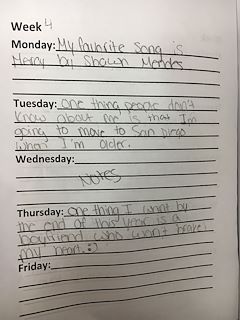 Week 4
Monday: My favorite song is
Mercy by Shawn Mendes
Tuesday: One thing people don't
know about me is that I'm
going to move to San Diego
when I'm older.
Wednesday:
Notes
Thursday: One thing I want by
the end of this year is a
boyfriend who won't brake
my heart. :)
Friday: